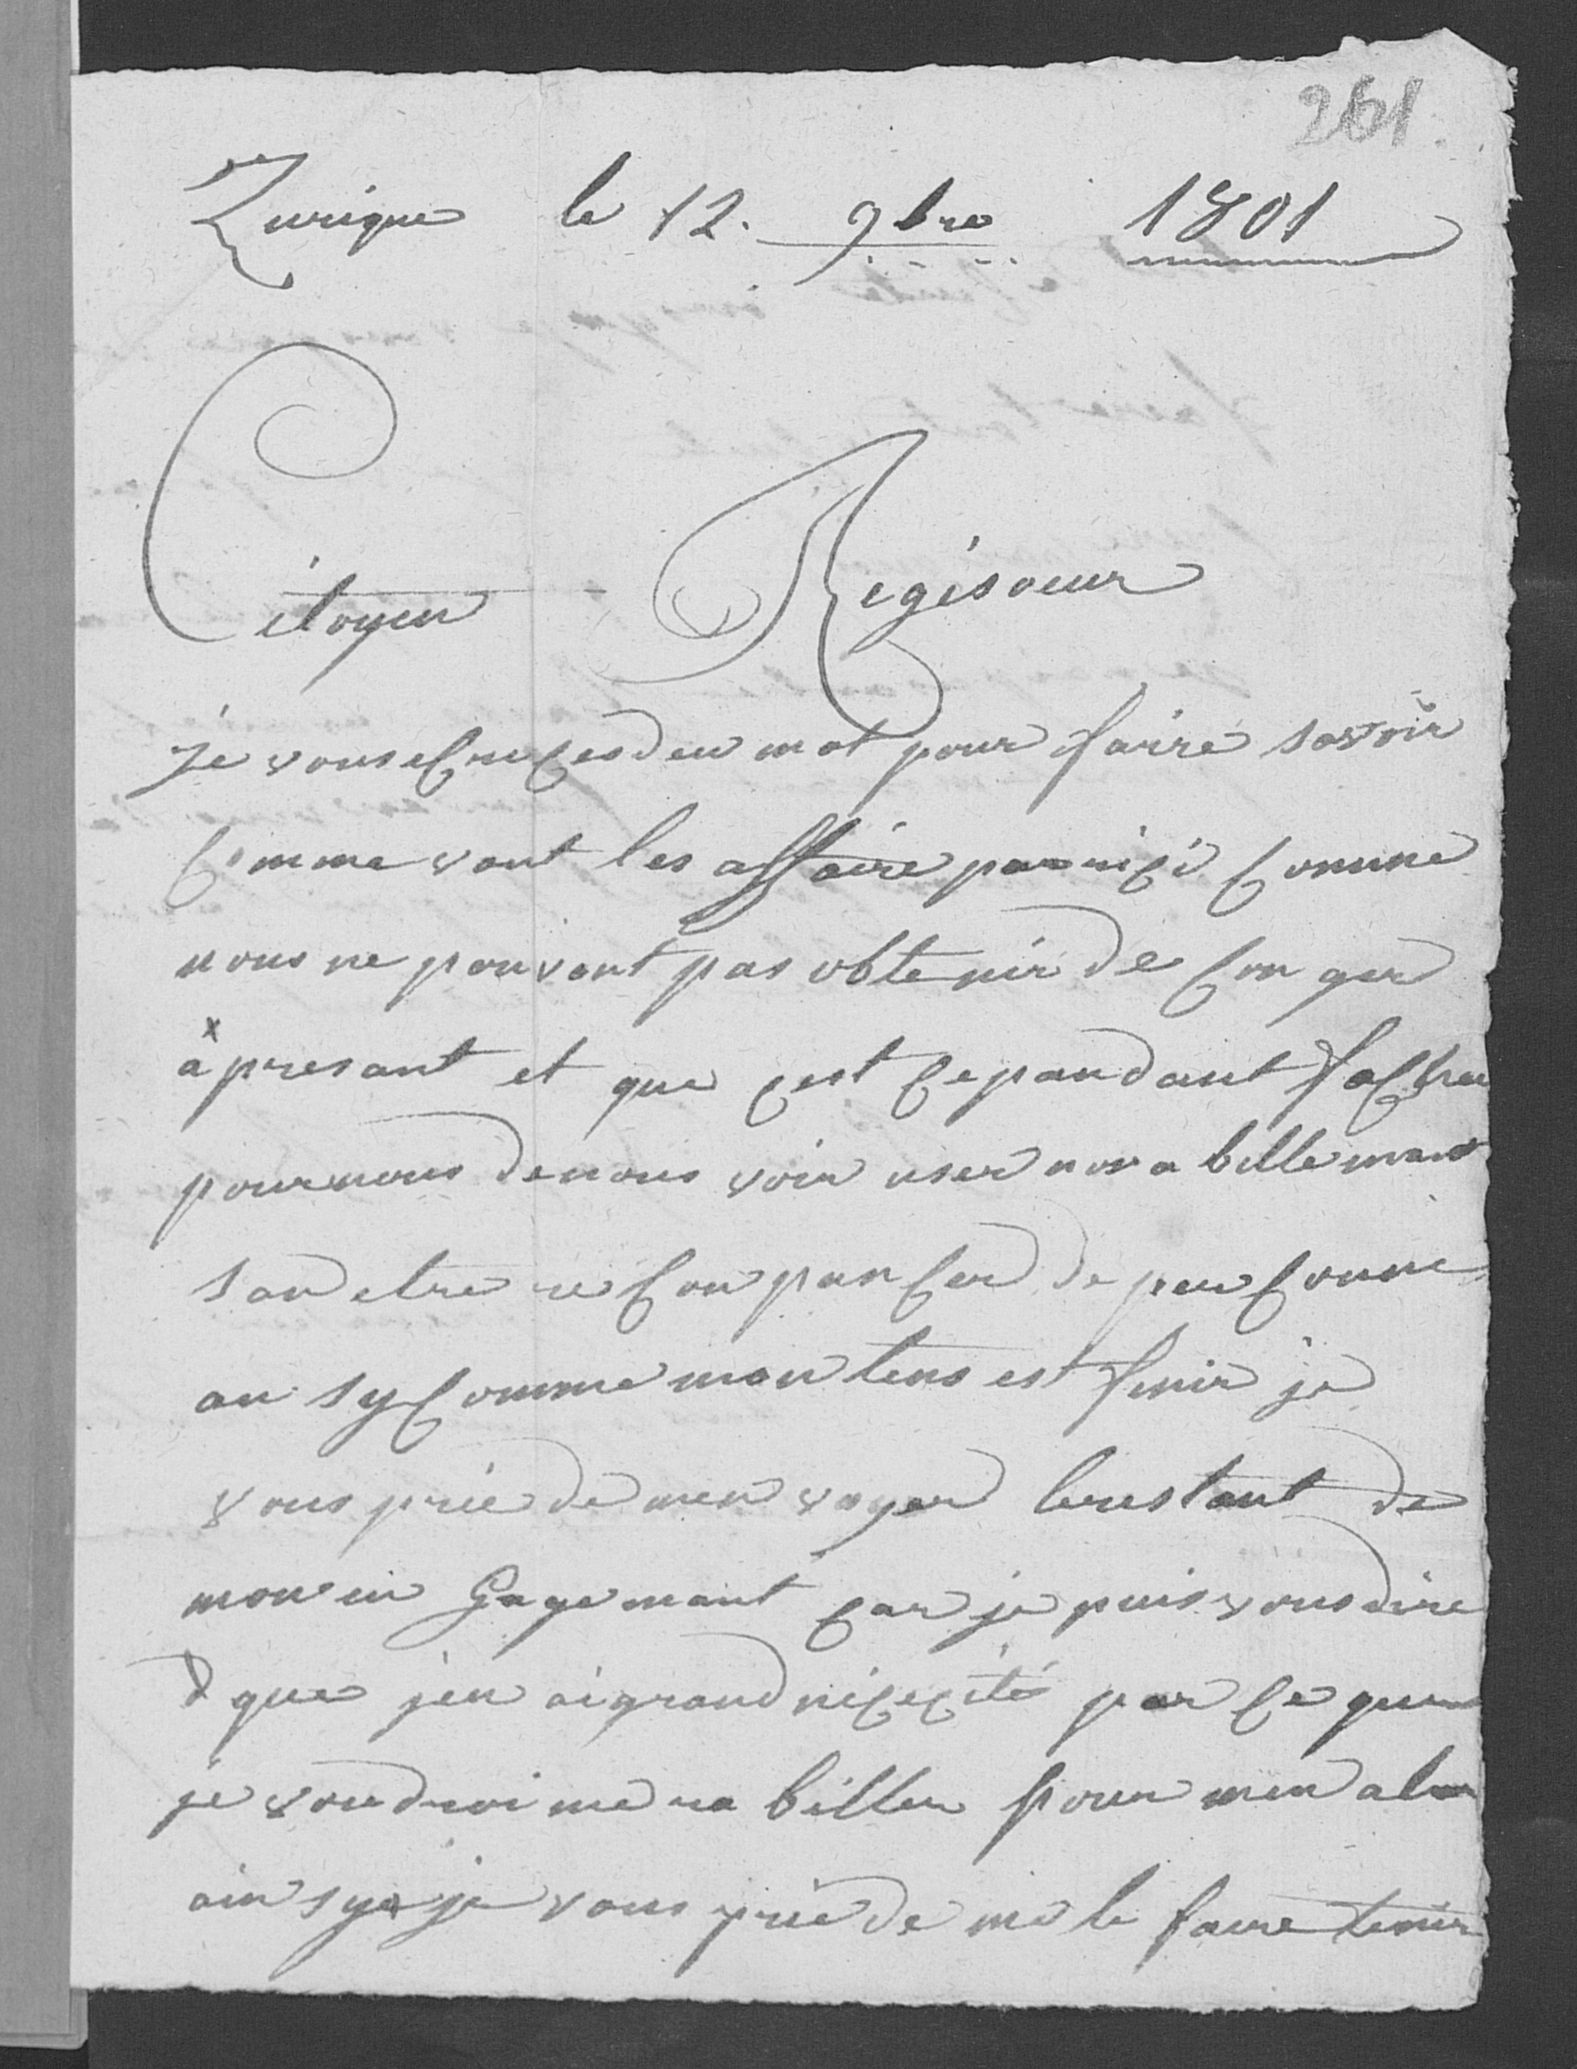 261.
Zurique le 12. 9bre 1801
Citoyen Regiseur
je vous ecri ces deu mot pour faire savoir
Comme vont les affaire par ici Comme
nous ne pouvont pas obtenir de Conger
a presant et que cest Cependant facheu
pour nous de nous voir user nos a billemant
san etre reCompanCer de perConne
au sy Comme mon tens est finir je
vous prie de men voyer le restant de
mon en Gagemant car je puis vous dire
que jen ai grand nicecité par Ce que
je voudroi me ra biller pour men aler
ain sy je vous prie de me le faire tenir